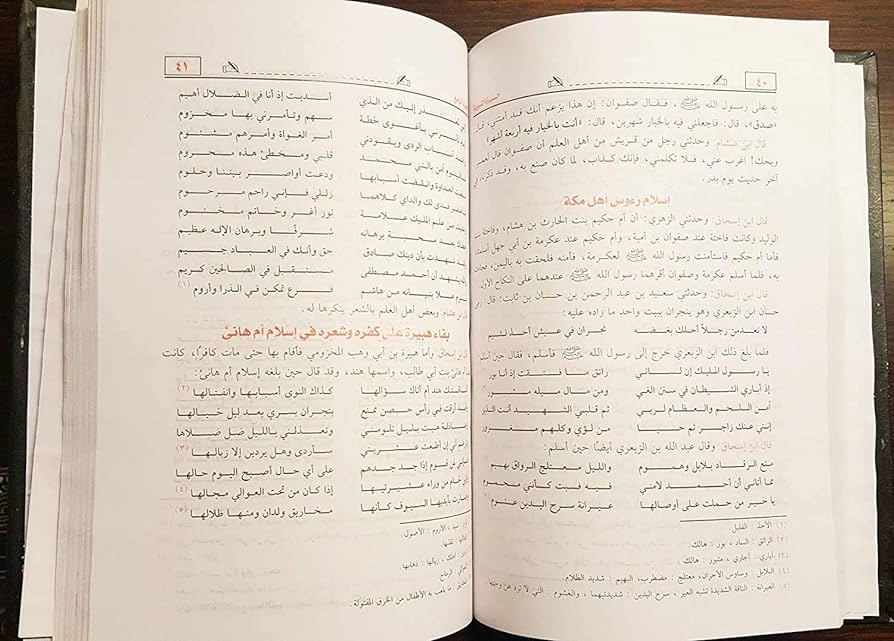 ٤٠
السيرة النبوية
به على رسول الله ﷺ، فقال صفوان: إن هذا يزعم أنك قد أمنتني، قال:
«صدق»، قال: فاجعلني فيه بالخيار شهرين، قال: «أنت بالخيار فيه أربعة أشهر»
قال ابن هشام: وحدثني رجل من قريش من أهل العلم أن صفوان قال لعمير:
ويحك! اغرب عني، فلا تكلمني، فإنك كذاب، لما كان صنع به، وقد ذكرناه في
آخر حديث يوم بدر.
إسلام رءوس أهل مكة
قال ابن إسحاق: وحدثني الزهري: أن أم حكيم بنت الحارث بن هشام، وفاختة بنت
الوليد وكانت فاختة عند صفوان بن أمية، وأم حكيم عند عكرمة بن أبي جهل أسلمتا
فأما أم حكيم فاستأمنت رسول الله ﷺ لعكرمة، فأمنه فلحقت به باليمن، فجاءت
به، فلما أسلم عكرمة وصفوان أقرهما رسول الله ﷺ عندهما على النكاح الأول
قال ابن إسحاق: وحدثني سعيد بن عبد الرحمن بن حسان بن ثابت: قال: رمى
حسان ابن الزبعرى وهو بنجران ببيت واحد ما زاده عليه:
لا تعدمن رجلاً أحلك بغضه نجران في عيش أحذ لئيم
فلما بلغ ذلك ابن الزبعرى خرج إلى رسول الله ﷺ فأسلم، فقال حين أسلم
يا رسول المليك إن لساني راتق ما فتقت إذ أنا بور
إذ أباري الشيطان في سنن الغي ومن مال ميله مثبور
آمن اللحم والعظام لربي ثم قلبي الشهيد أنت النذير
إنني عنك زاجر ثم حيا من لؤي وكلهم مغرور
قال ابن إسحاق: وقال عبد الله بن الزبعرى أيضًا حين أسلم:
منع الرقاد بلابل وهموم والليل معتلج الرواق بهيم
مما أتاني أن أحمد لامني فيه فبت كأنني محموم
يا خير من حملت على أوصالها عيرانة سرح اليدين غشوم
(١) الأحذ : القليل
(٢) الراتق : الساد ، بور : هالك.
(٣) أباري : أجاري ، مثبور : هالك .
(٤) البلابل : وساوس الأحزان، معتلج : مضطرب، البهيم : شديد الظلام.
(٥) العيرانة : الناقة الشديدة تشبه العير ، سرح اليدين : شديدتيهما ، والغشوم : التي لا ترد عن وجهها
٤١
إليك من الذي أسديت إذ أنا في الضلال أهيم
بأغوى خطة سهم وتأمرني بها مخزوم
أسباب الردى ويقودني أمر الغواة وأمرهم مشئوم
آمن بالنبي محمد قلبي ومخطئ هذه محروم
العداوة وانقضت أسبابها ودعت أواصر بيننا وحلوم
فدى لك والداي كلاهما زللي فإنك راحم مرحوم
من علم المليك علامة نور أغر وخاتم مختوم
محبة برهانه شرفًا وبرهان الإله عظيم
بأن دينك صادق حق وأنك في العباد جسيم
يشهد أن أحمد مصطفى مستقبل في الصالحين كريم
بنيانه من هاشم فرع تمكن في الذرا وأروم (١)
قال ابن هشام: وبعض أهل العلم بالشعر ينكرها له.
بقاء هبيرة على كفره وشعره في إسلام أم هانئ
قال ابن إسحاق: وأما هبيرة بن أبي وهب المخزومي فأقام بها حتى مات كافرًا، كانت
بنت أبي طالب، واسمها هند، وقد قال حين بلغه إسلام أم هانئ:
هند أم أتاك سؤالها كذاك النوى أسبابها وانفتالها (٢)
أرقت في رأس حصن ممنع بنجران يسري بعد ليل خيالها
هبت بليل تلومني وتعذلني بالليل ضل ضلالها
أني إن أطعت عشيرتي سأردى وهل يردين إلا زيالها (٣)
قوم إذا جد جدهم على أي حال أصبح اليوم حالها
من وراء عشيرتها إذا كان من تحت العوالي مجالها (٤)
بأيديها السيوف كأنها مخاريق ولدان ومنها ظلالها (٥)
، الأروم : الأصول.
: تقلبها.
أهلك ، زيالها : ذهابها.
: الرماح
: ما يلعب به الأطفال من الخرق المفتولة.